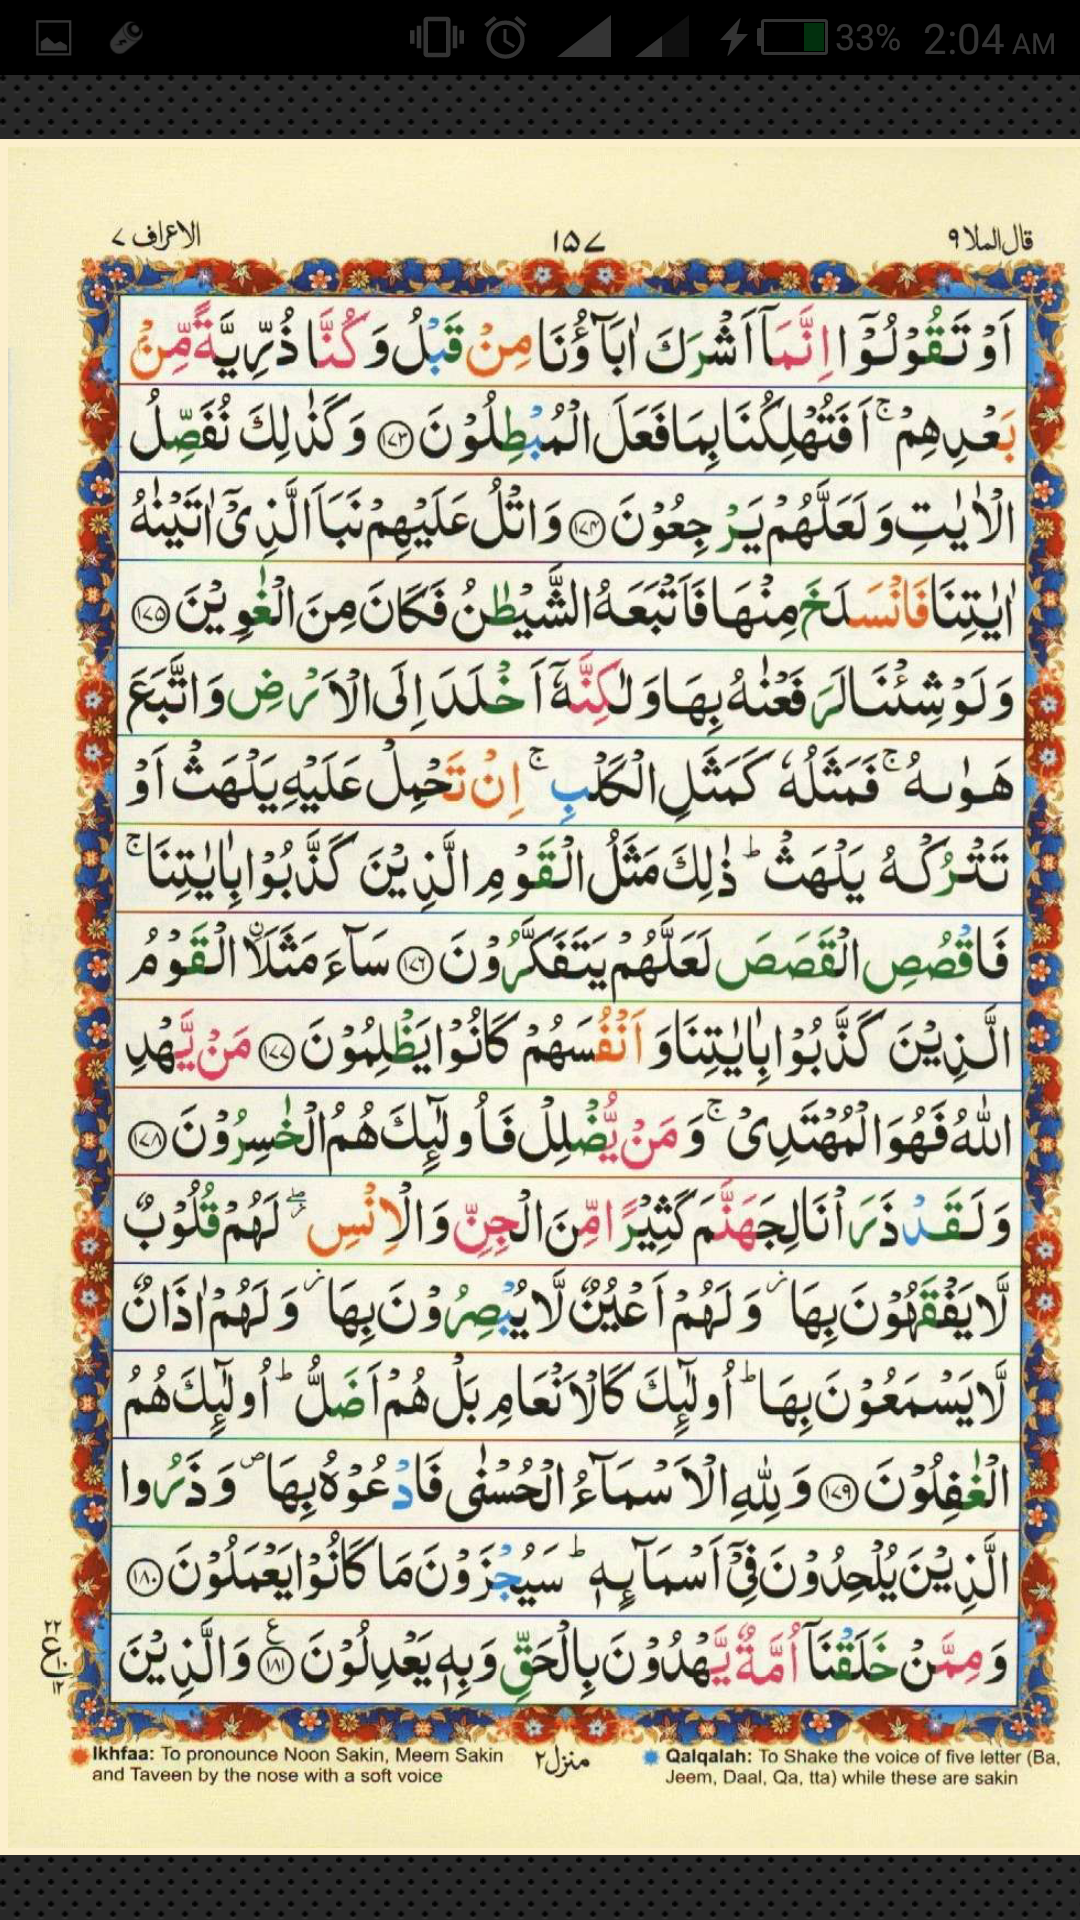 33% 2:04 AM
قال الملا ۹
۱۵۷
الاعراف ۷
اَوْ تَقُوْلُوْۤا اِنَّمَاۤ اَشْرَكَ اٰبَآؤُنَا مِنْ قَبْلُ وَكُنَّا ذُرِّیَّةً مِّنْۢ
بَعْدِهِمْ ۚ اَفَتُهْلِكُنَا بِمَا فَعَلَ الْمُبْطِلُوْنَ ۝۱۷۳ وَكَذٰلِكَ نُفَصِّلُ
الْاٰیٰتِ وَلَعَلَّهُمْ یَرْجِعُوْنَ ۝۱۷۴ وَاتْلُ عَلَیْهِمْ نَبَاَ الَّذِیْۤ اٰتَیْنٰهُ
اٰیٰتِنَا فَانْسَلَخَ مِنْهَا فَاَتْبَعَهُ الشَّیْطٰنُ فَكَانَ مِنَ الْغٰوِیْنَ ۝۱۷۵
وَلَوْ شِئْنَا لَرَفَعْنٰهُ بِهَا وَلٰكِنَّهٗۤ اَخْلَدَ اِلَى الْاَرْضِ وَاتَّبَعَ
هَوٰىهُ ۚ فَمَثَلُهٗ كَمَثَلِ الْكَلْبِ ۚ اِنْ تَحْمِلْ عَلَیْهِ یَلْهَثْ اَوْ
تَتْرُكْهُ یَلْهَثْ ؕ ذٰلِكَ مَثَلُ الْقَوْمِ الَّذِیْنَ كَذَّبُوْا بِاٰیٰتِنَا ۚ
فَاقْصُصِ الْقَصَصَ لَعَلَّهُمْ یَتَفَكَّرُوْنَ ۝۱۷۶ سَآءَ مَثَلَاۨ الْقَوْمُ
الَّذِیْنَ كَذَّبُوْا بِاٰیٰتِنَا وَاَنْفُسَهُمْ كَانُوْا یَظْلِمُوْنَ ۝۱۷۷ مَنْ یَّهْدِ
اللّٰهُ فَهُوَ الْمُهْتَدِیْ ۚ وَمَنْ یُّضْلِلْ فَاُولٰٓىِٕكَ هُمُ الْخٰسِرُوْنَ ۝۱۷۸
وَلَقَدْ ذَرَاْنَا لِجَهَنَّمَ كَثِیْرًا مِّنَ الْجِنِّ وَالْاِنْسِ ۖؗ لَهُمْ قُلُوْبٌ
لَّا یَفْقَهُوْنَ بِهَا ؗ وَلَهُمْ اَعْیُنٌ لَّا یُبْصِرُوْنَ بِهَا ؗ وَلَهُمْ اٰذَانٌ
لَّا یَسْمَعُوْنَ بِهَا ؕ اُولٰٓىِٕكَ كَالْاَنْعَامِ بَلْ هُمْ اَضَلُّ ؕ اُولٰٓىِٕكَ هُمُ
الْغٰفِلُوْنَ ۝۱۷۹ وَلِلّٰهِ الْاَسْمَآءُ الْحُسْنٰى فَادْعُوْهُ بِهَا ۪ وَذَرُوا
الَّذِیْنَ یُلْحِدُوْنَ فِیْۤ اَسْمَآىِٕهٖ ؕ سَیُجْزَوْنَ مَا كَانُوْا یَعْمَلُوْنَ ۝۱۸۰
وَمِمَّنْ خَلَقْنَاۤ اُمَّةٌ یَّهْدُوْنَ بِالْحَقِّ وَبِهٖ یَعْدِلُوْنَ ۝۱۸۱ وَالَّذِیْنَ
۲۲
ع
۱۰
۱۲
Ikhfaa: To pronounce Noon Sakin, Meem Sakin
and Taveen by the nose with a soft voice
منزل ۲
Qalqalah: To Shake the voice of five letter (Ba,
Jeem, Daal, Qa, tta) while these are sakin